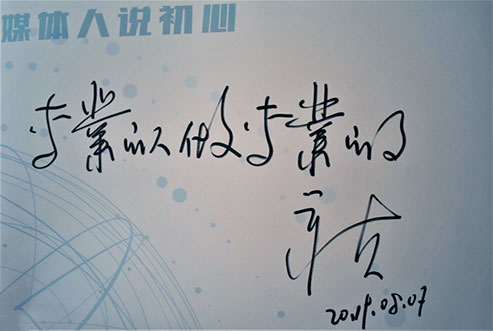 媒体人说初心
专業的人做专業的
2019.08.07